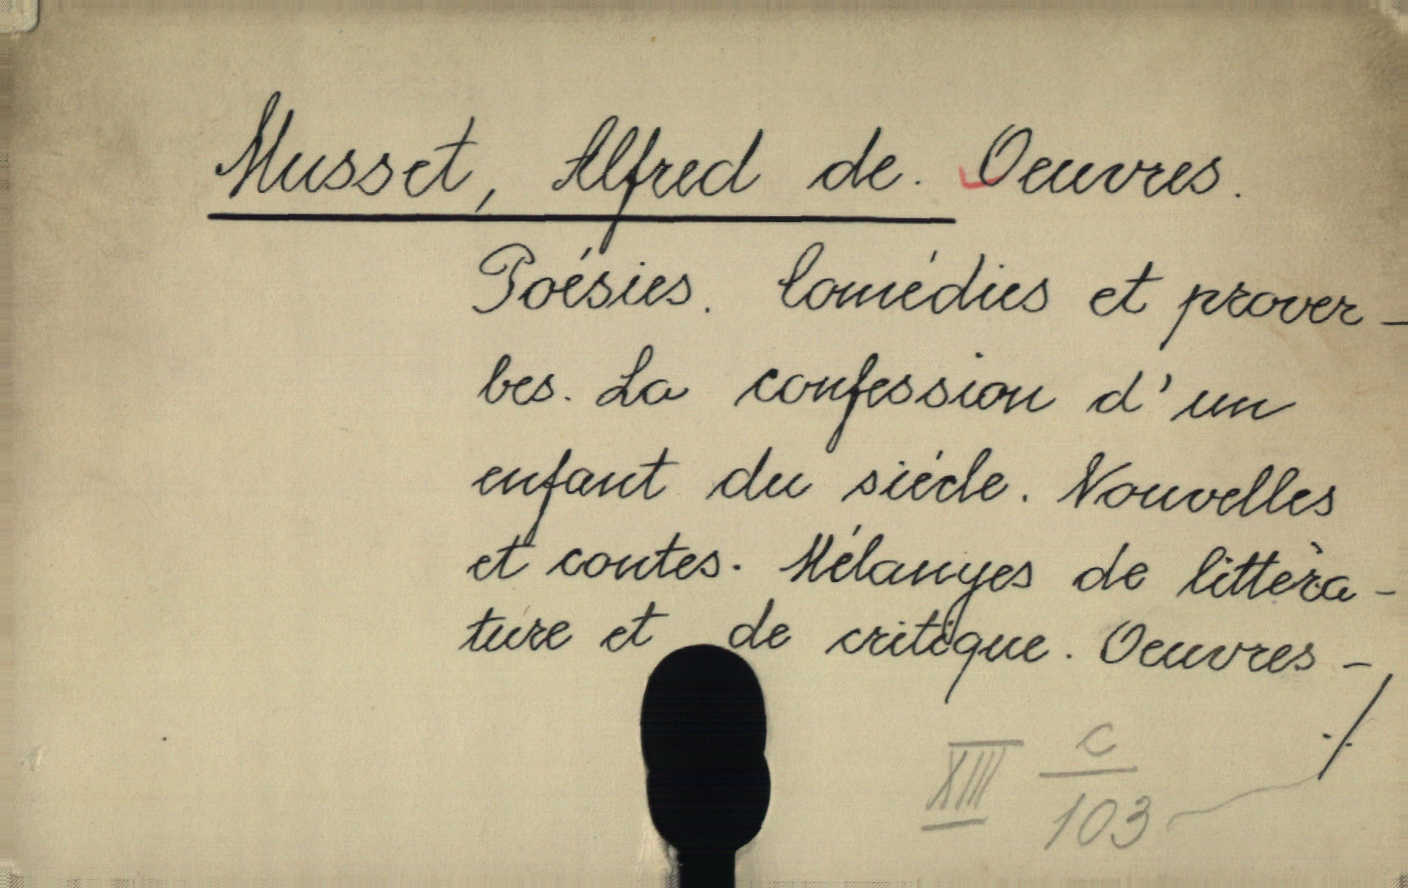 Musset, Alfred de. Oeuvres.
Poésies. Comédies et prover-
bes. La confession d'un
enfant du siécle. Nouvelles
et contes. Mélanges de littèra-
ture et de critique. Oeuvres-
./.
XIII c
103